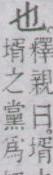 也
釋親曰。壻
壻之黨爲